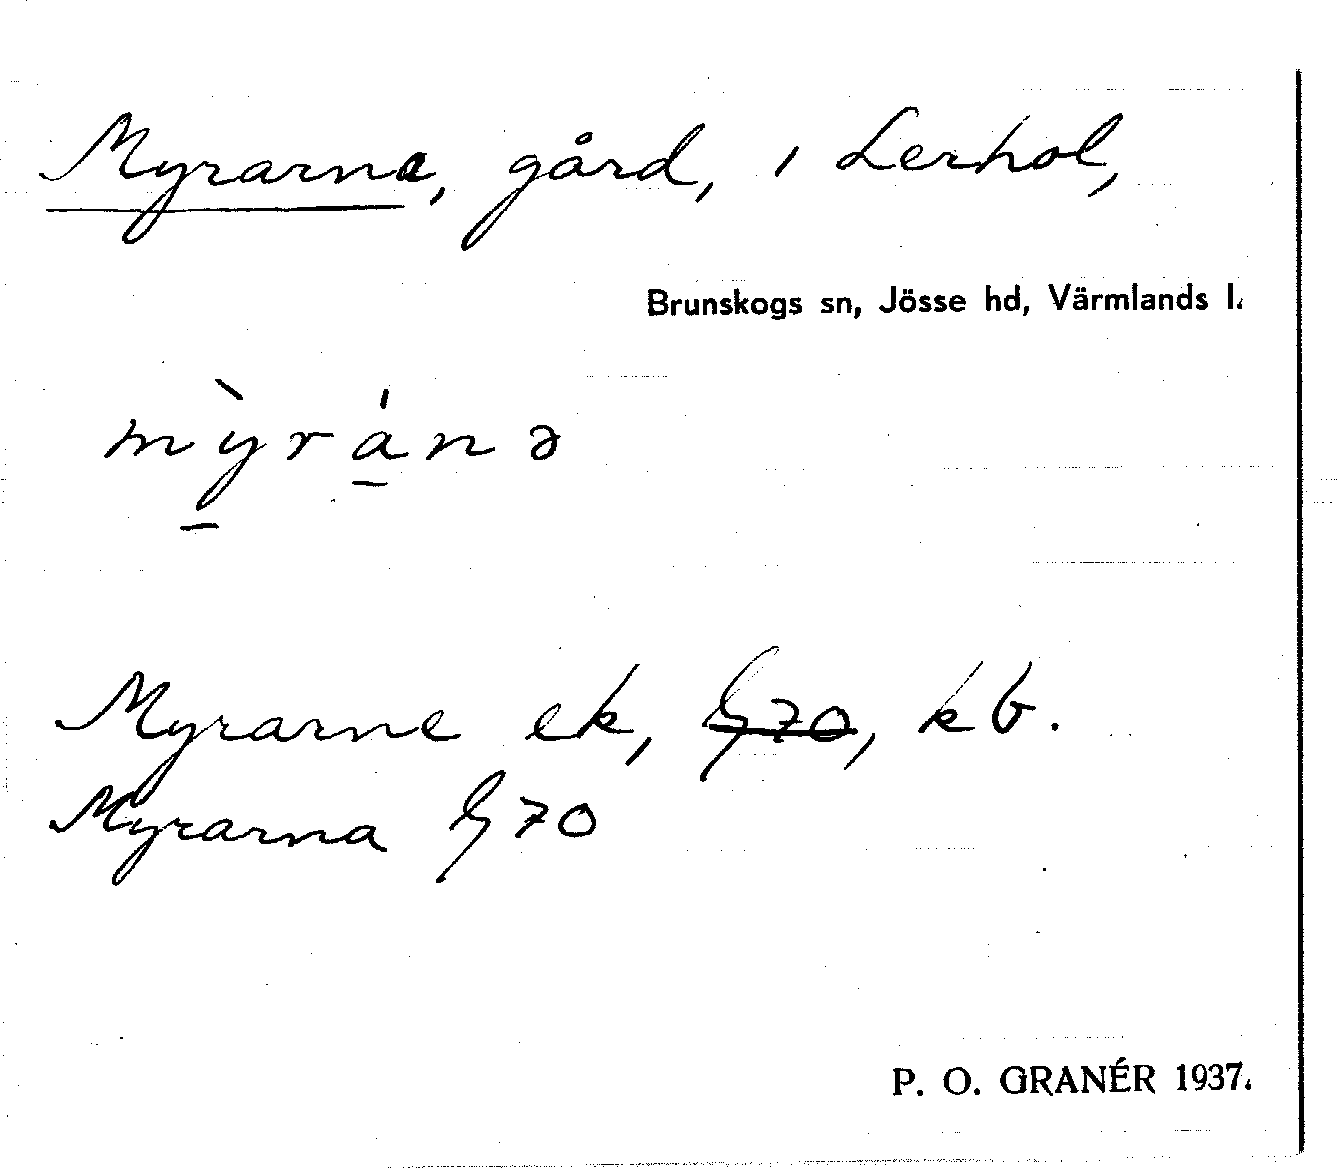 Myrarna, gård, i Lerhol,
Brunskogs sn, Jösse hd, Värmlands l.
mỳ̱rá̱nə
Myrarne ek, G70, kb.
Myrarna G70
P. O. GRANÉR 1937.